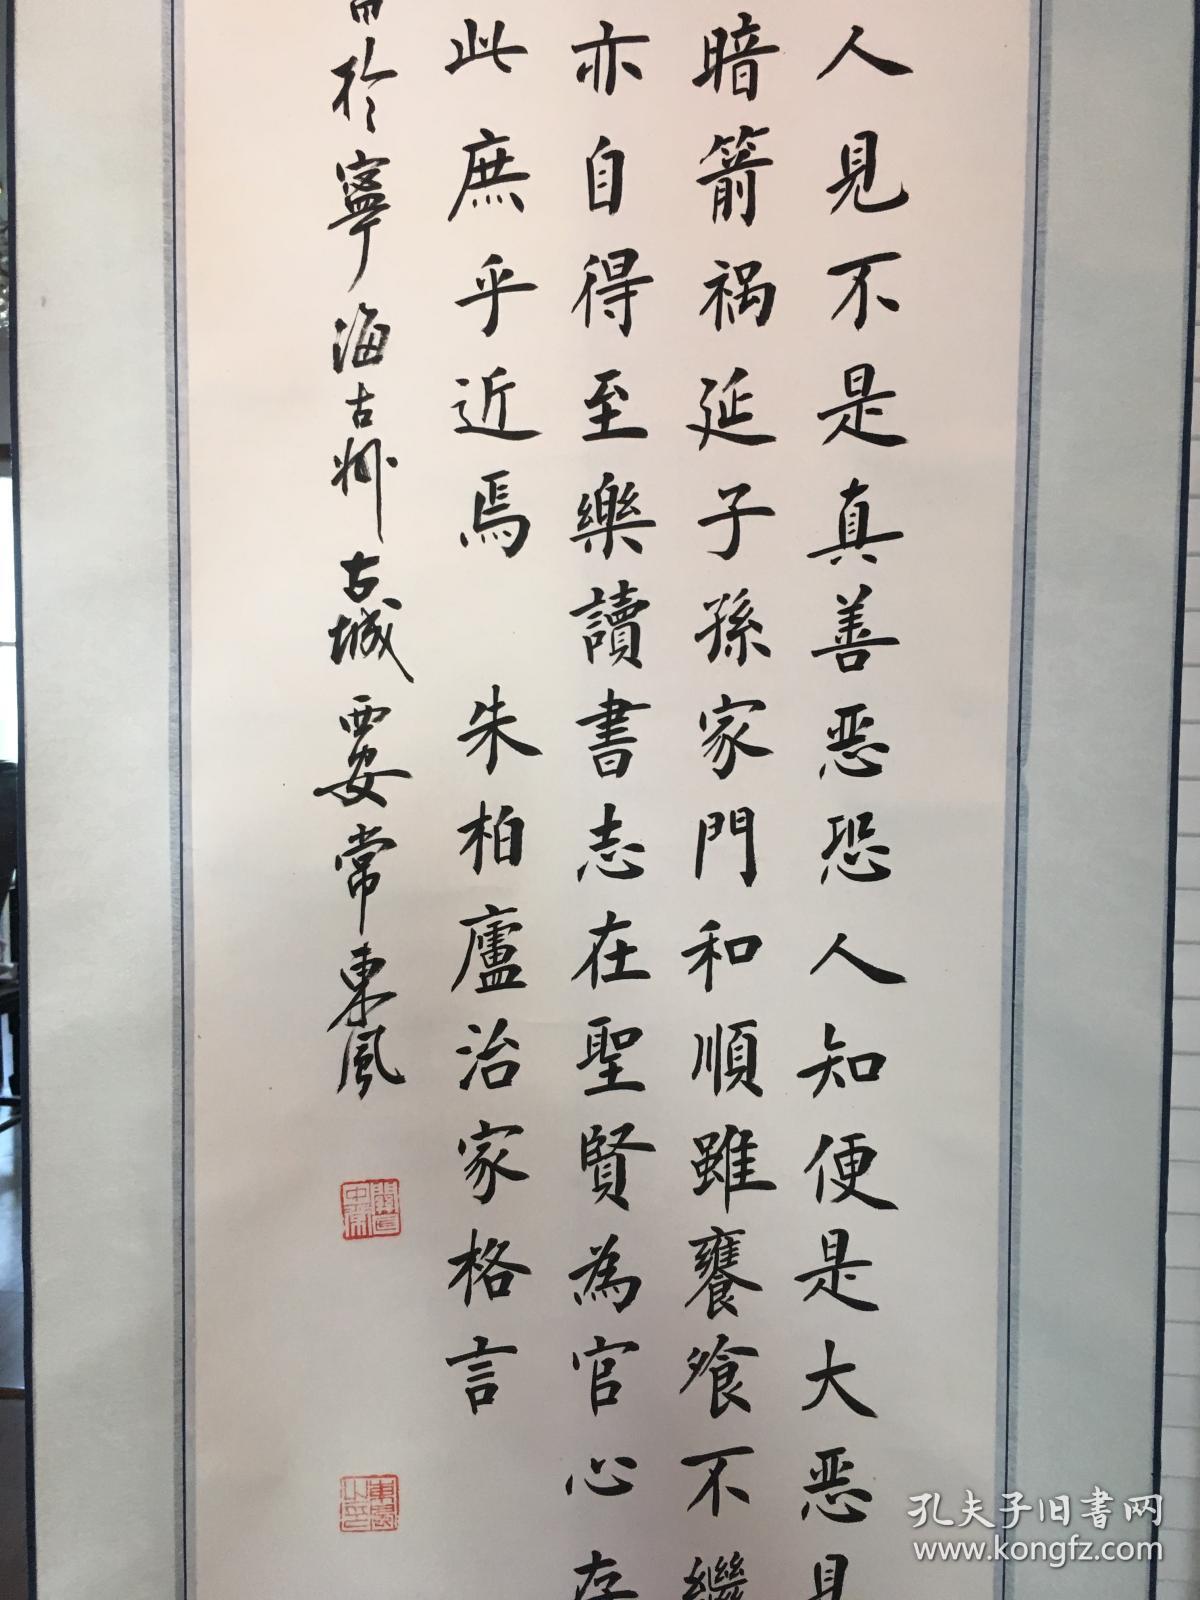 人見不是真善恶恐人知便是大恶見
暗箭祸延子孫家門和順雖饔飧不繼
亦自得至樂讀書志在聖賢為官心存
此庶乎近焉 朱柏廬治家格言
於寧海古州古城西安常東風
孔夫子旧书网
www.kongfz.com